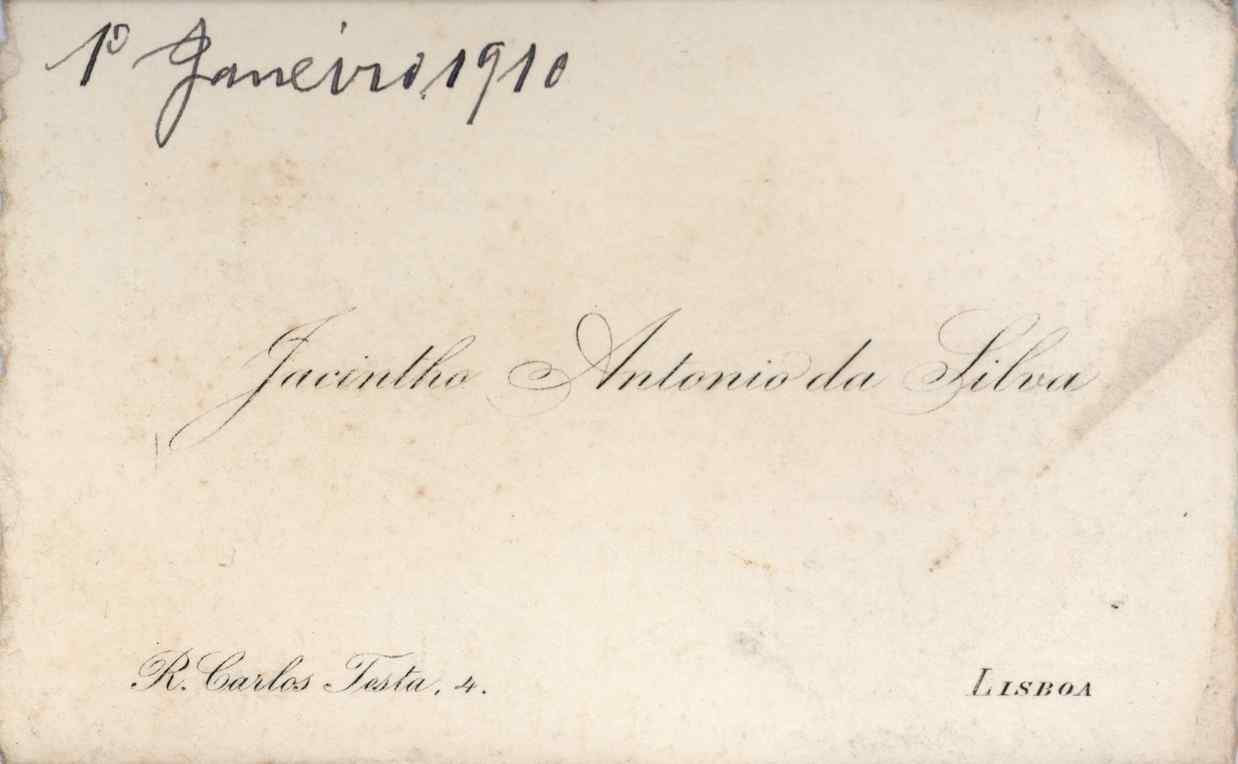 1º Janeiro, 1910
Jacintho Antonio da Silva
R. Carlos Testa, 4.
LISBOA